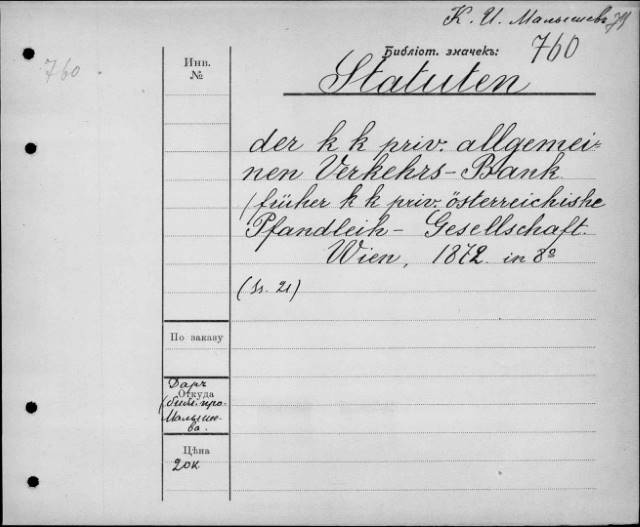 К. И. Малышевъ
Библіот. значекъ: 760
760
Инв.
№
Statuten
der k k priv. allgemei-
nen Verkehrs-Bank
(früher k k priv. österreichishe
Pfandleih- Gesellschaft.
Wien, 1872 in 8º
(S. 21)
По заказу
Даръ
Откуда
(библ. про.
Малыше-
ва.
Цѣна
20к